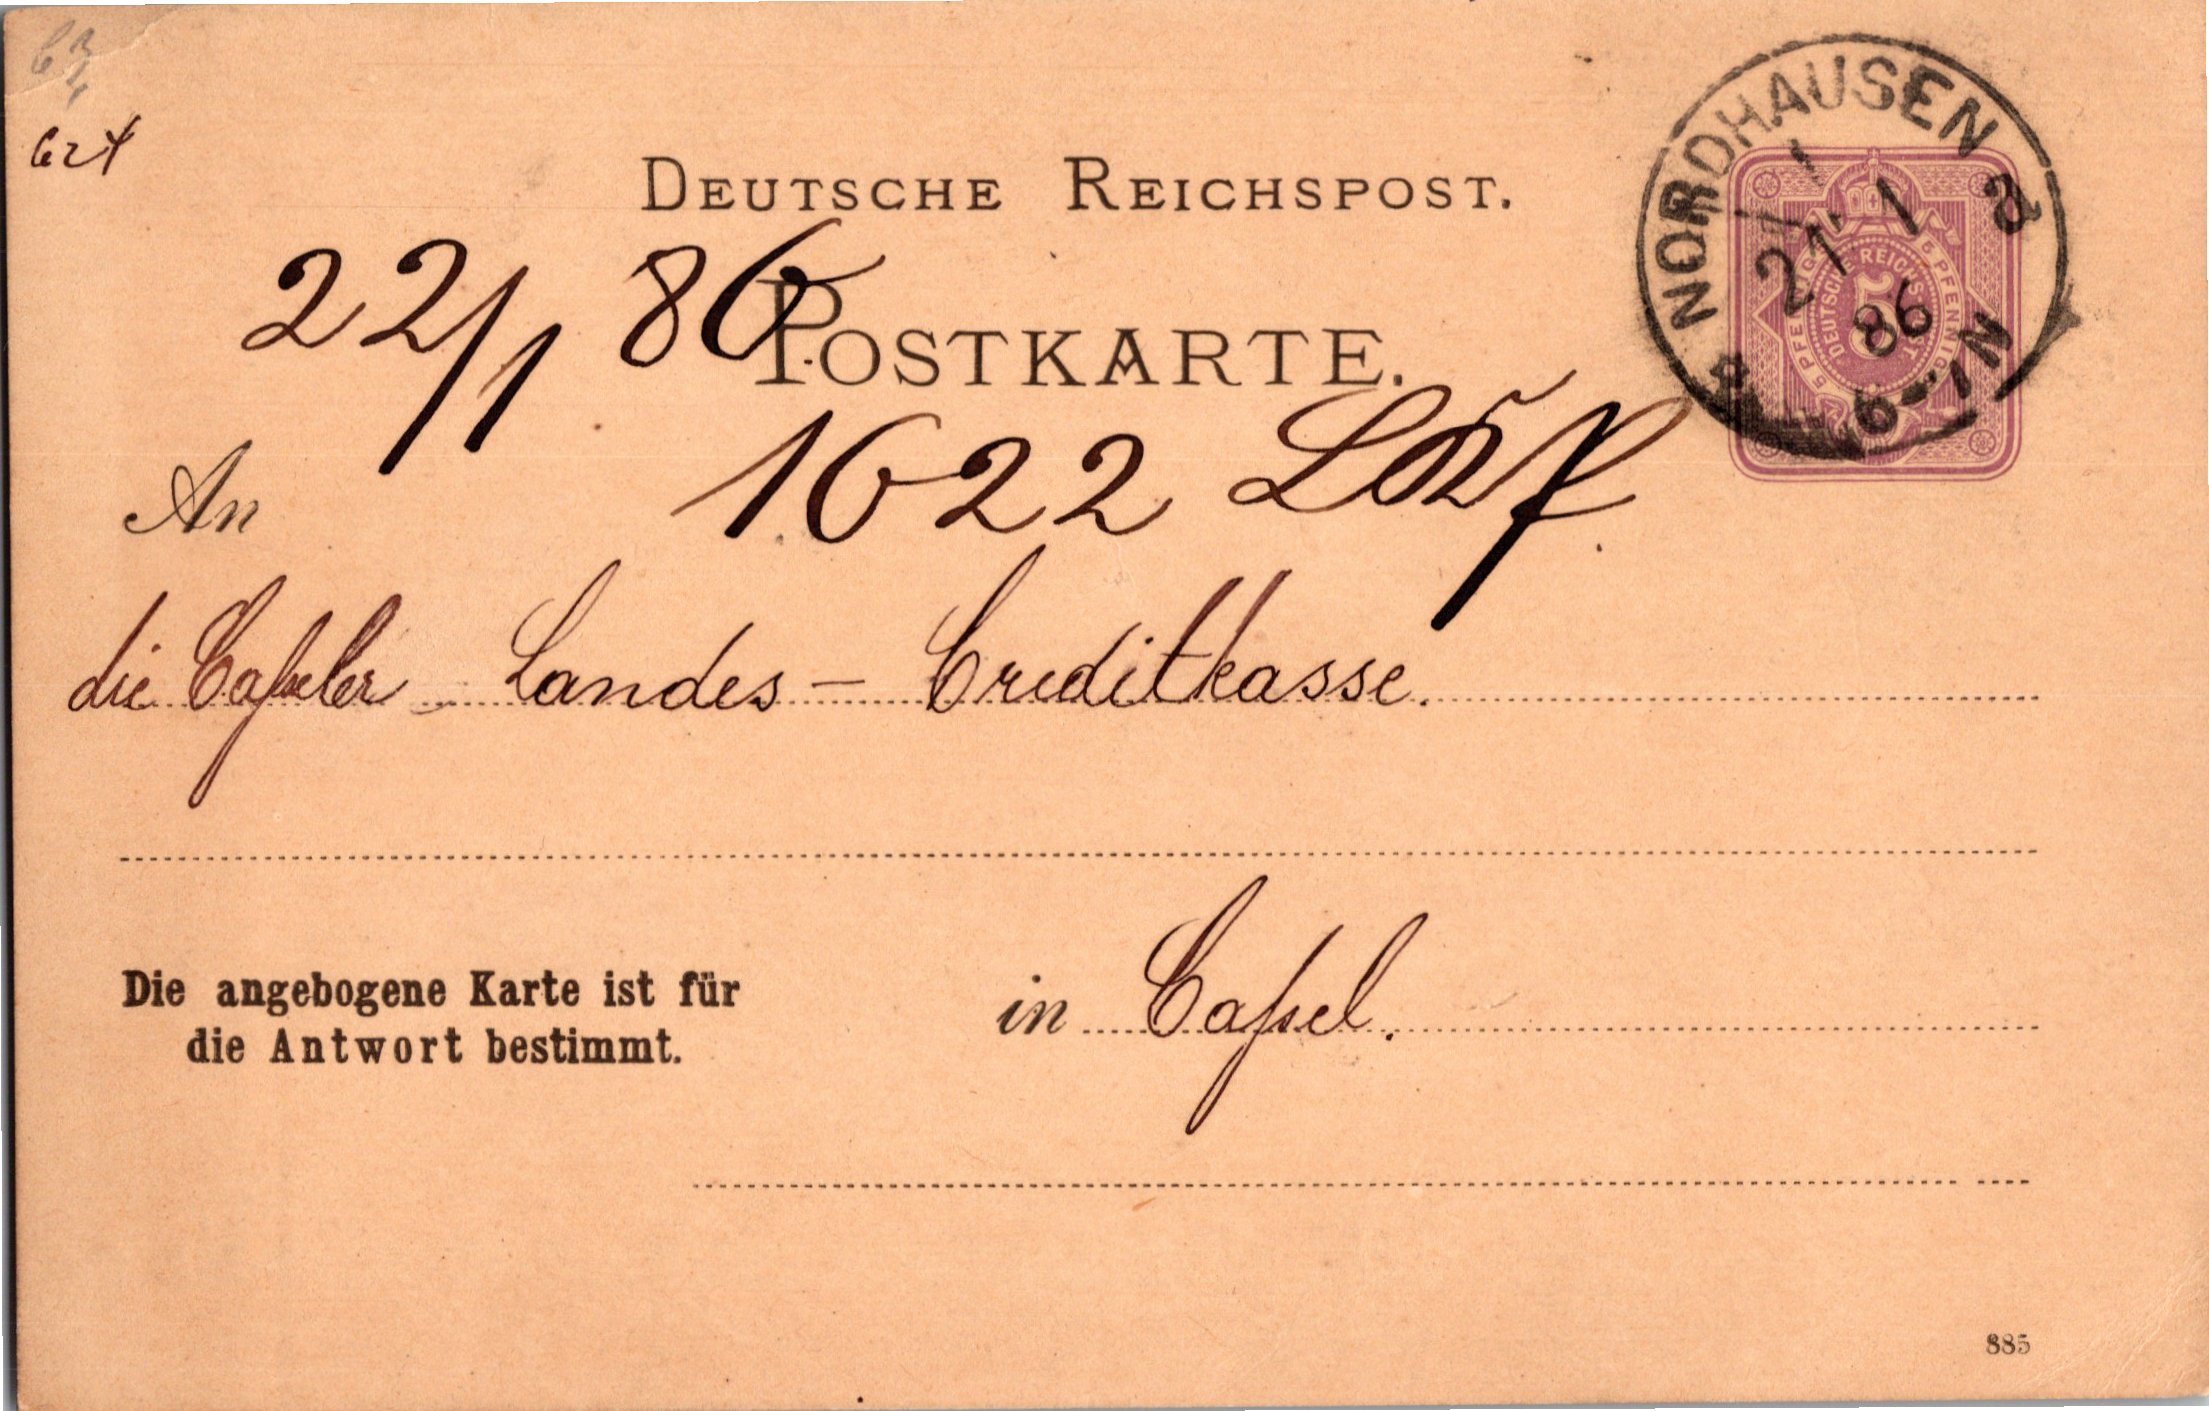 624
DEUTSCHE REICHSPOST.
NORDHAUSEN
21 1
86
6-7N
5 PFENNIG 5 PFENNIG
DEUTSCHE REICHSPOST
5
22/1 86
POSTKARTE.
1622
An
die Casseler Landes-Creditkasse.
Die angebogene Karte ist für
die Antwort bestimmt.
in Cassel.
885